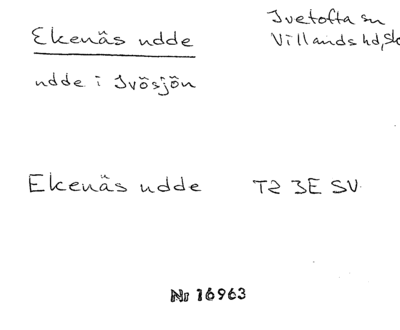 Ekenäs udde
Ivetofta sn
Villands hd, Sk
udde i Ivösjön
Ekenäs udde T2 3E SV
Nr 16963